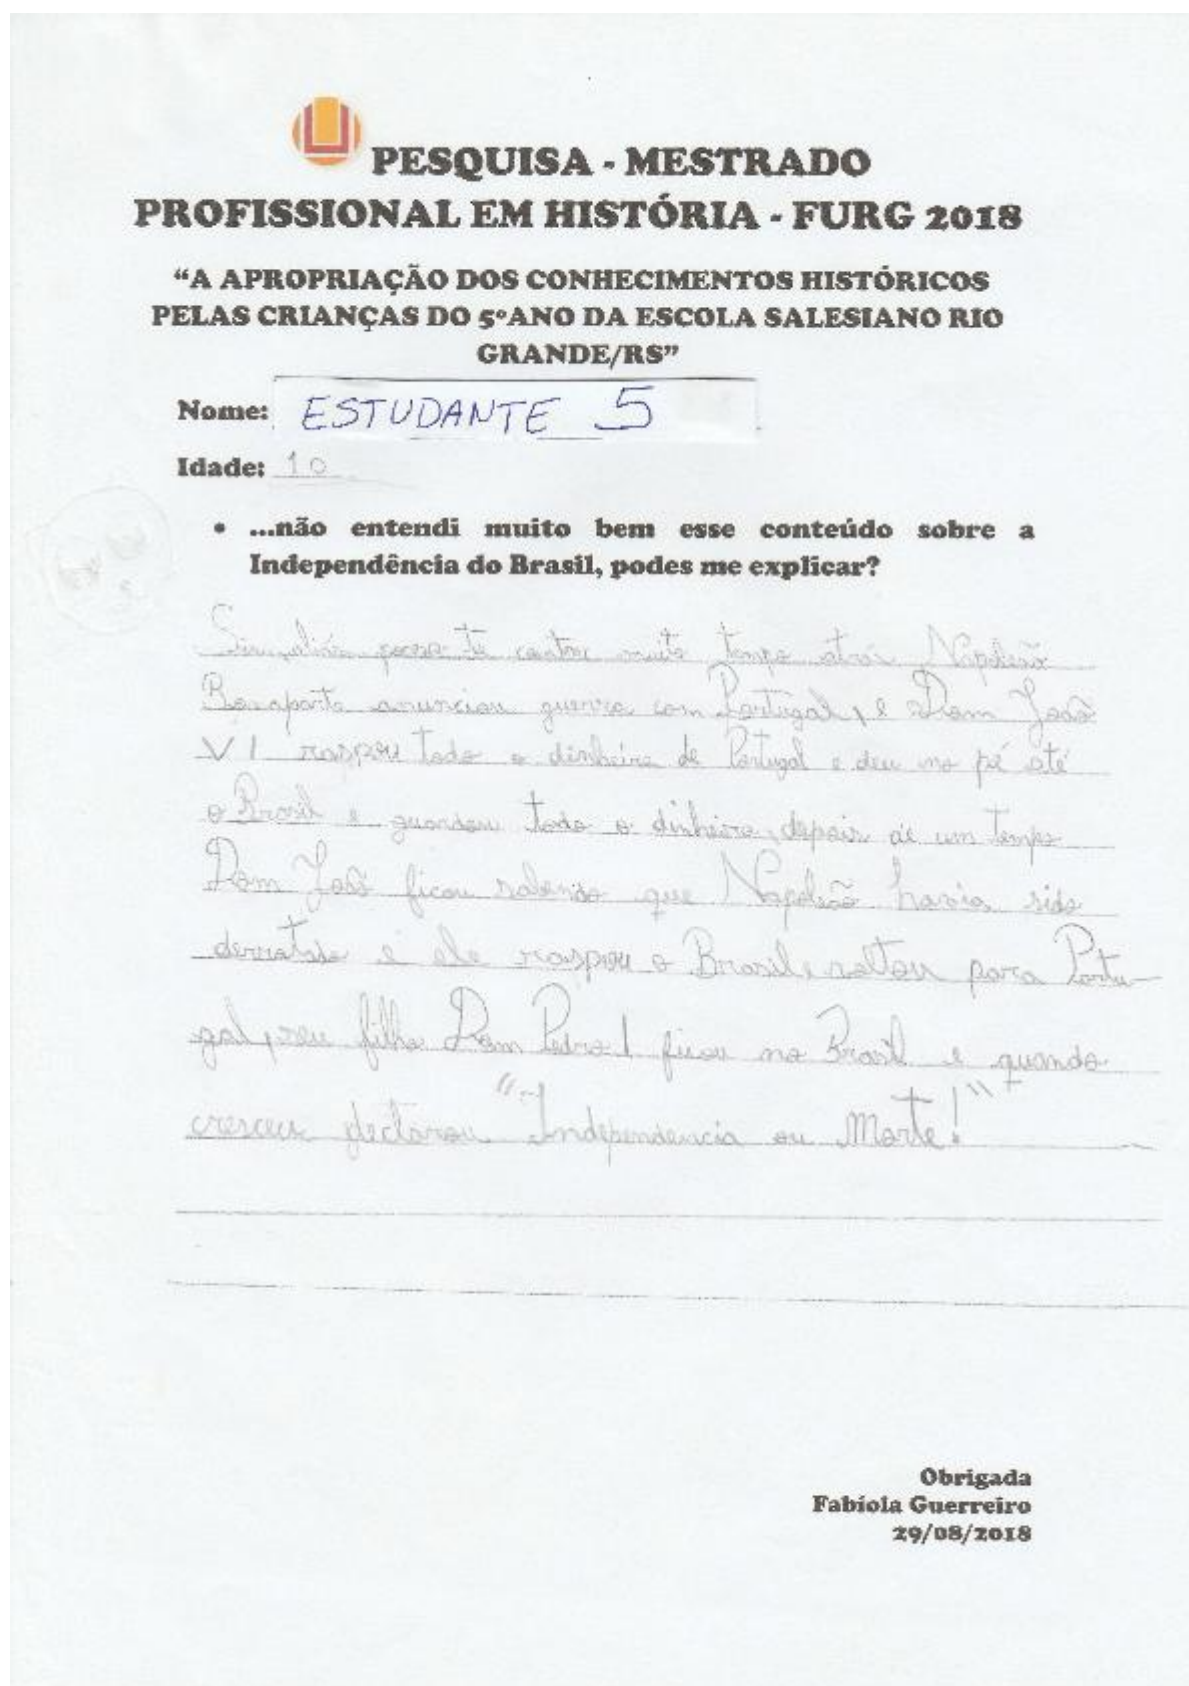 PESQUISA - MESTRADO
PROFISSIONAL EM HISTÓRIA - FURG 2018
“A APROPRIAÇÃO DOS CONHECIMENTOS HISTÓRICOS
PELAS CRIANÇAS DO 5ºANO DA ESCOLA SALESIANO RIO
GRANDE/RS”
Nome: ESTUDANTE 5
Idade: 10
• ...não entendi muito bem esse conteúdo sobre a
Independência do Brasil, podes me explicar?
Sim, aliás posso te contar muito tempo atrás Napoleão
Bonaparte anunciou guerra com Portugal, e Dom João
VI raspou todo o dinheiro de Portugal e deu no pé até
o Brasil e guardou todo o dinheiro, depois de um tempo
Dom João ficou sabendo que Napoleão havia sido
derrotado e ele raspou o Brasil e voltou para Portu-
gal, seu filho Dom Pedro I ficou no Brasil e quando
cresceu declarou "Independencia ou Morte!"
Obrigada
Fabíola Guerreiro
29/08/2018